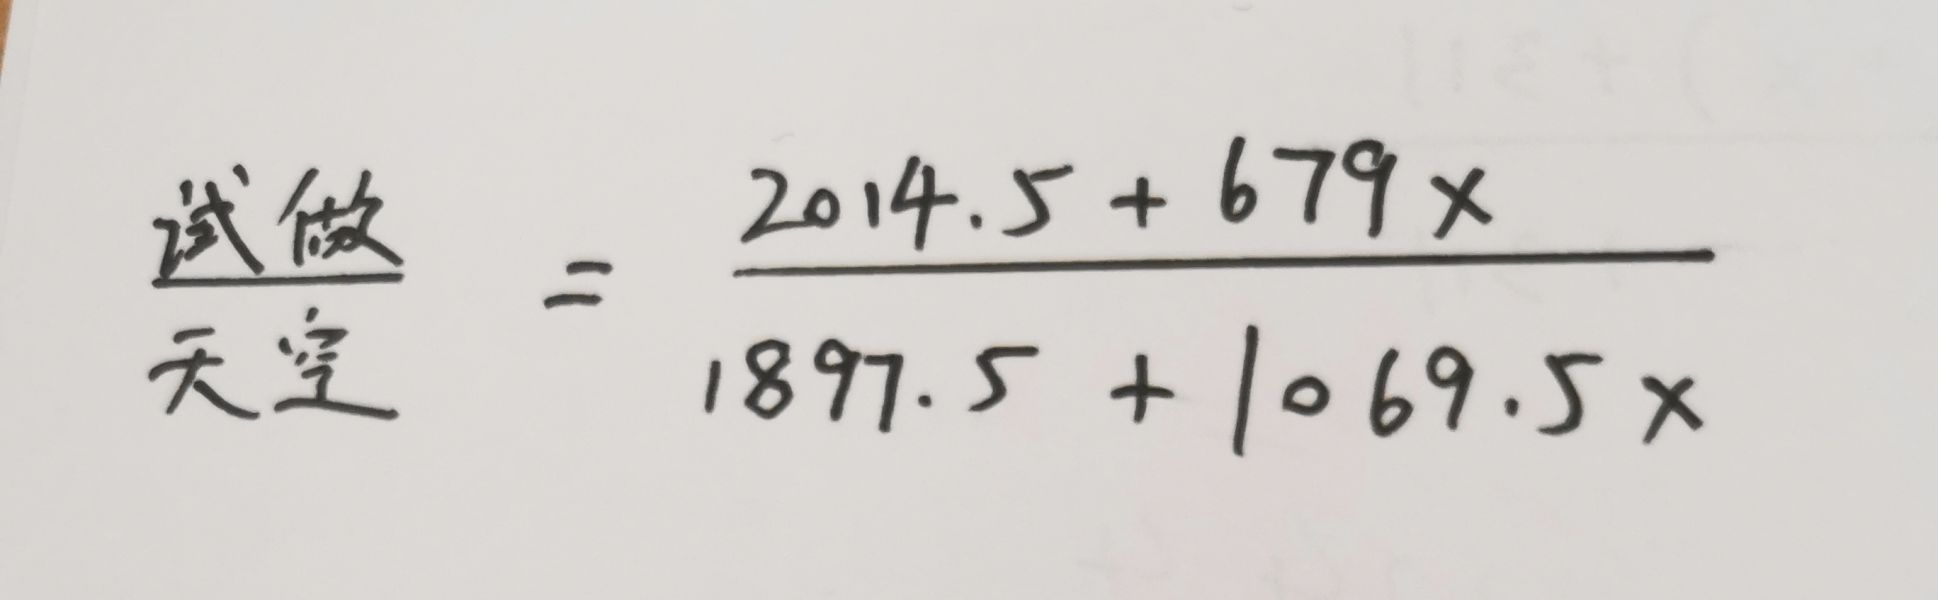 试做 = 2014.5 + 679x
天空 1897.5 + 1069.5x